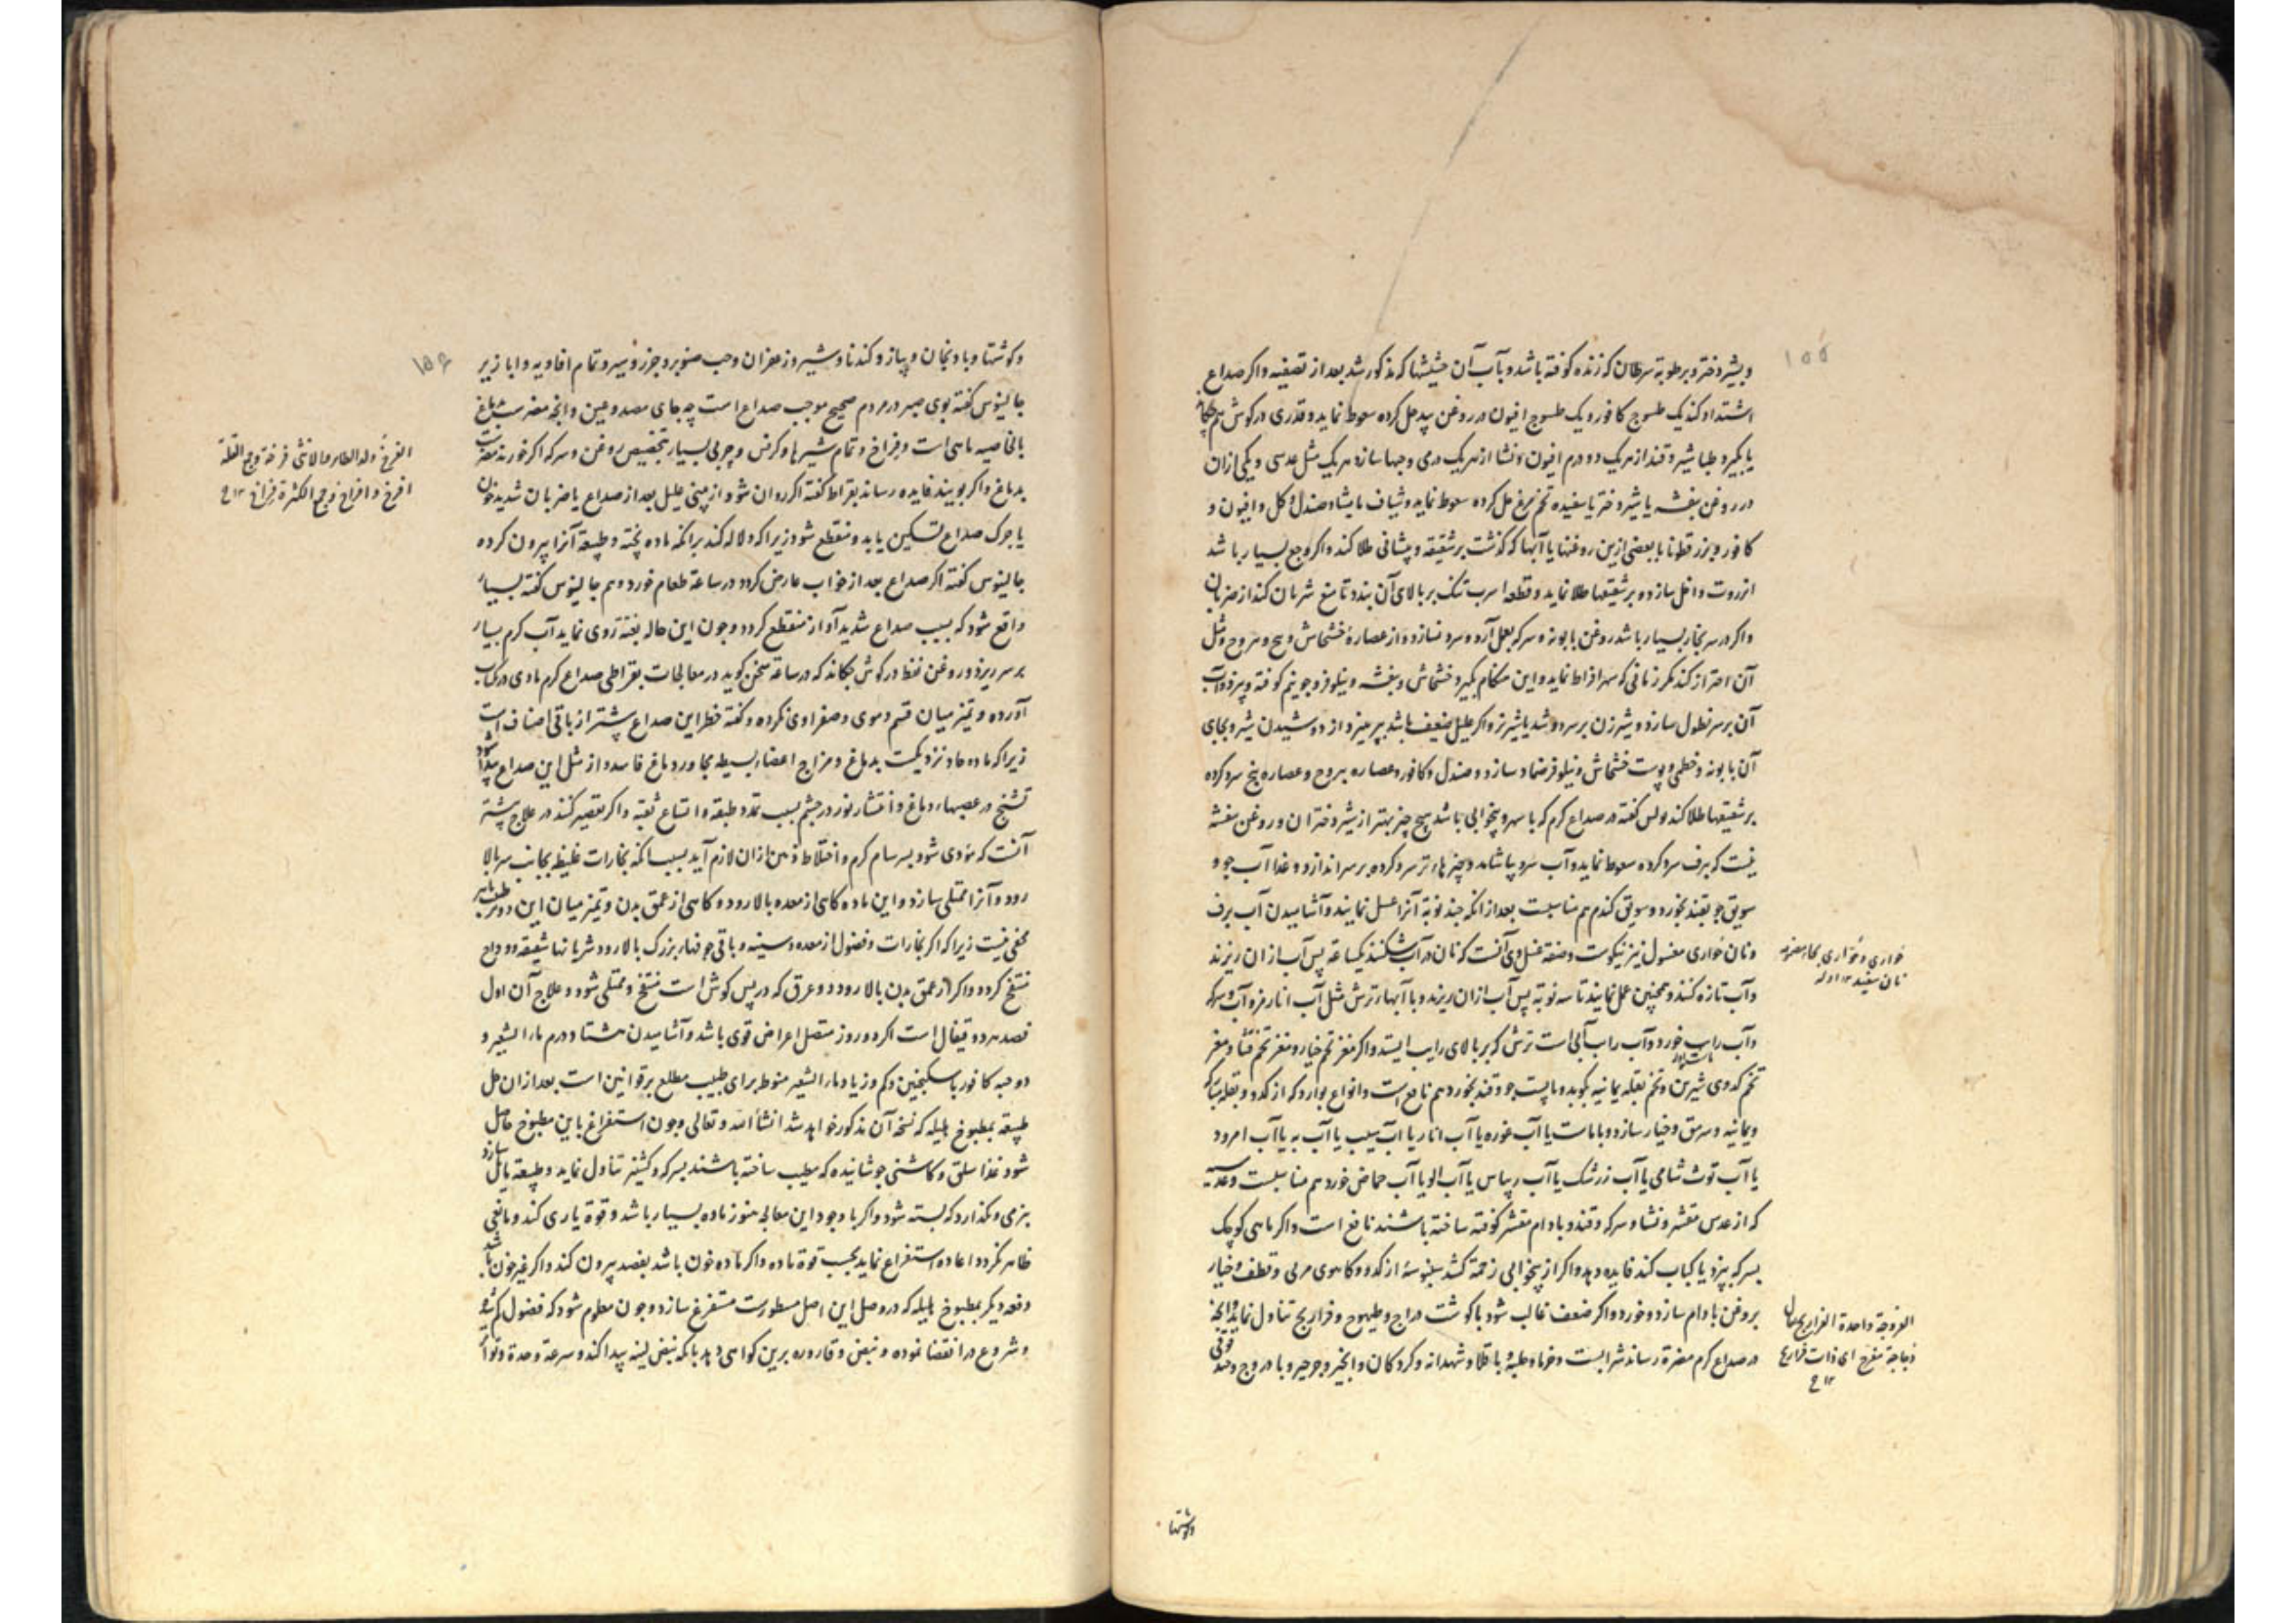 ۱۵۵
و بشیر دختر و برطوبة سرطان که زنده کوفته باشد و بآب آن حشیشها که مذکور شد بعد از تصفیه و اکر صداع
اشتداد کند یک طسوج کافور و یک طسوج افیون در روغن بید حل کرده سعوط نماید و قدری در کوش هم چکاند
یا بکیرد طباشیر و قند از هریک دو درم افیون و نشا از هریک درمی و حبها سازد هریک مثل عدسی و یکی ازان
در روغن بنفشه یا شیر دختر یا سفیده تخم مرغ حل کرده سعوط نماید و شیاف مامیثا و صندل و کل و افیون و
کافور و بزرقطونا با بعضی ازین روغنها یا آبها که کذشت بر شقیقه و پیشانی طلا کند و اکر وجع بسیار باشد
انزروت داخل سازد و بر شقیقها طلا نماید و قطعه اسرب تنک بر بالای آن بندد تا منع شریان کند از ضربان
و اکر در سر بخار بسیار باشد روغن بابونه و سرکه بعمل آرد و سرد نسازد و از عصارهٔ خشخاش و بنج و یبروج و مثل
آن احتراز کند مکر زمانی که سهر افراط نماید و این هنکام بکیرد خشخاش و بنفشه و نیلوفر و جو نیم کوفته و بپزد و آب
آن بر سر نطول سازد و شیر زن بر سر دوشد یا شیر بز و اکر علیل ضعیف باشد بپرهیزد از دوشیدن شیر و بجای
آن بابونه و خطمی و پوست خشخاش و نیلوفر ضماد سازد و صندل و کافور و عصاره یبروج و عصاره بنج سرد کرده
بر شقیقها طلا کند و لس کفته در صداع کرم که با سهر و بیخوابی باشد هیچ چیز بهتر از شیر دختران و روغن بنفشه
نیست که ببرف سرد کرده سعوط نماید و آب سرد بپاشامد و چیزهای تر سرد کرده بر سر اندازد و غذا آب جو و
سویق جو بقند بخورد و سویق کندم هم مناسبست بعد از انکه چند نوبة آنرا غسل نمایند و آشامیدن آب برف
و نان حواری مغسول نیز نیکوست و صفة غسل وی آنست که نان در آب شکنند یکساعة پس آب ازان ریزند
و آب تازه کنند و همچنین عمل نمایند تا سه نوبة پس آب ازان ریزند و با آبهاء ترش مثل آب انار مز و آب و سرکه
و آب رایب خورد و آب رایب آبی است ترش که بر بالای رایب ایستد و اکر مغز تخم خیار و مغز تخم قثا و مغز
تخم کدوی شیرین و تخم بقله یمانیه بکوبد و با پست جو و قند بخورد هم نافع است و انواع بوارد که از کدو و بقله مبارکه
و یمانیه و سرمق و خیار سازد و با ماست یا آب غوره یا آب انار یا آب سیب یا آب به یا آب امرود
یا آب توث شامی یا آب زرشک یا آب ریباس یا آب الو یا آب حماض خورد هم مناسبست و عدسیه
که از عدس مقشر و نشا و سرکه و قند و بادام مقشر کوفته ساخته باشند نافع است و اکر ماهی کوچک
بسرکه بپزد یا کباب کند فایده دهد و اکر از بیخوابی زحمة کشد سنبوسهٔ از کدو و کاهوی مربی و قطف و خیار
بروغن بادام سازد و خورد و اکر ضعف غالب شود با کوشت دراج و طیهوج و فراریج تناول نماید و انچه
در صداع کرم مضرة رساند شرابست و خرما و حلبه و باقلا و شهدانه و کردکان و انجیر و جرجیر و بادروج و خندقوقی
حواری و حُوّاری بحاء مضمومه
نان سفید ۱۲
الفروجة واحدة الفراریج یقال
دجاجة مفرج ای ذات فراریج
۱۲ ح
وکوشتها
۱۵۶
و کوشتها و بادنجان و پیاز و کندنا و شیر و زعفران و حب صنوبر و جزر و سیر و تمام افاویه و ابازیر
جالینوس کفته بوی صبر در مردم صحیح موجب صداع است چه جای مصدوعین و انچه مضر است بدماغ
بالخاصیه ماهی است و فراخ و تمام شیرها و کرفس و چربی بسیار بتخصیص روغن و سرکه اکر خورند مضرست
بدماغ و اکر بویند فایده رساند بقراط کفته اکر روان شود از بینی علیل بعد از صداع یا ضربان شدید خون
یا چرک صداع تسکین یابد و منقطع شود زیراکه دلاله کند برانکه ماده پخته و طبیعة آنرا بیرون کرده
جالینوس کفته اکر صداع بعد از خواب عارض کردد در ساعة طعام خورد و هم جالینوس کفته بسیار
واقع شود که بسبب صداع شدید آواز منقطع کردد و چون این حاله بغتة روی نماید آب کرم بسیار
بر سر ریزد و روغن نفط در کوش چکاند که در ساعة سخن کوید در معالجات بقراطی صداع کرم مادی در یکباب
آورده و تمیز میان قسم دموی و صفراوی نکرده و کفته خطر این صداع بیشتر از باقی اصناف است
زیراکه ماده حاد نزدیکست بدماغ و مزاج اعضاء بسیطه مجاور دماغ فاسد و از مثل این صداع پیدا شود
تشنج در عصبهاء دماغ و انتشار نور در چشم بسبب تمدد طبقه و اتساع ثقبه و اکر تقصیر کنند در علاج بیشتر
آنست که مؤدی شود بسرسام کرم و اختلاط ذهن ازان لازم آید بسبب انکه بخارات غلیظ بجانب سر بالا
رود و آنرا ممتلی سازد و این ماده کاهی از معده بالا رود و کاهی از عمق بدن و تمیز میان این دو بر طبیب ماهر
مخفی نیست زیراکه اکر بخارات و فضول از معده و سینه و باقی جوفهاء بزرک بالا رود شریانها شقیقه و وداج
منتفخ کردد و اکر از عمق بدن بالا رود دو عرق که در پس کوش است منتفخ و ممتلی شود و علاج آن اول
فصد هر دو قیفال است اکر دو روز متصل اعراض قوی باشد و آشامیدن هشتاد درم ماء الشعیر و
دو حبه کافور با سکنجبین و کم و زیاد ماء الشعیر منوط برای طبیب مطلع بر قوانین است بعد ازان حل
طبیعة بمطبوخ هلیله که نسخه آن مذکور خواهد شد انشاء الله تعالی و چون استفراغ باین مطبوخ حاصل
شود غذا سلق و کاشنی جوشانیده که مطیب ساخته باشند بسرکه و کشنیز تناول نماید و طبیعة مایل سازد
بنرمی و نکذارد که بسته شود و اکر با وجود این معالجه هنوز ماده بسیار باشد و قوة یاری کند و مانعی
ظاهر نکردد اعاده استفراغ نماید بحسب قوة ماده و اکر ماده خون باشد بفصد بیرون کند و اکر غیر خون باشد
دفعه دیکر بمطبوخ هلیله که در وصل این اصل مسطورست مستفرغ سازد و چون معلوم شود که فضول کم شد
و شروع در انقضا نموده و نبض و قاروره برین کواهی دهد بانکه نبض لینه پیدا کند و سرعة و حدة و تواتر
الفرخ ولد الطایر و الانثی فرخة و جمع القلة
افرخ و افراخ و جمع الکثرة فراخ ۱۲ ح